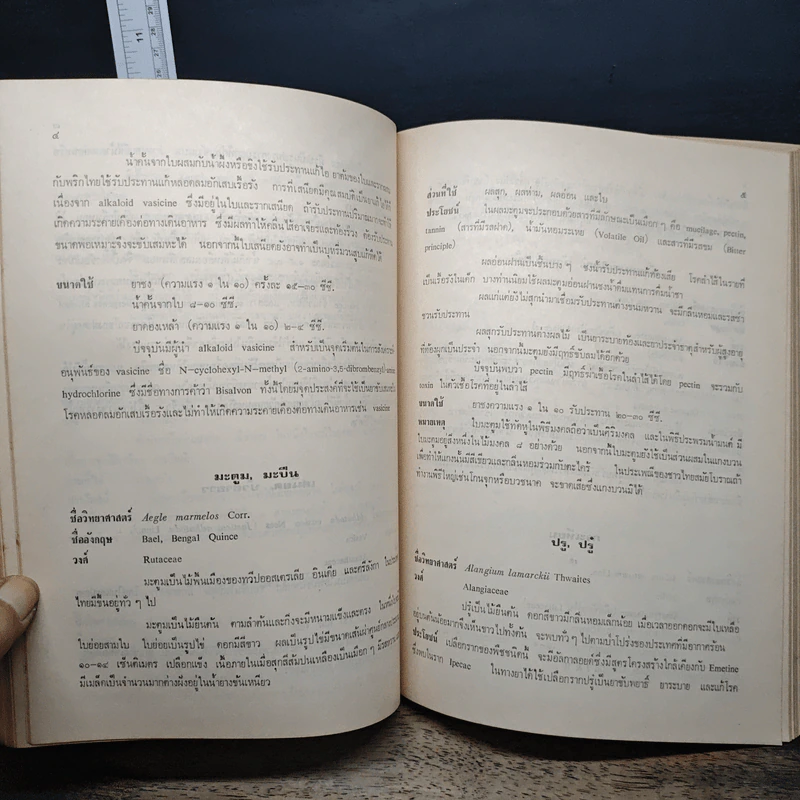 ๔
น้ำคั้นจากใบผสมกับน้ำผึ้งหรือขิงใช้รับประทานแก้ไอ ยาต้มของใบและราก
กับพริกไทยใช้รับประทานแก้หลอดลมอักเสบเรื้อรัง การที่เสนียดมีคุณสมบัติเป็นยาแก้ไอได้
เนื่องจาก alkaloid vasicine ซึ่งมีอยู่ในใบและรากเสนียด ถ้ารับประทานปริมาณมากจะ
เกิดความระคายเคืองต่อทางเดินอาหาร ซึ่งมีผลทำให้คลื่นไส้อาเจียรและท้องร่วง ต้องรับประทาน
ขนาดพอเหมาะจึงจะขับเสมหะได้ นอกจากนี้ใบเสนียดยังอาจทำเป็นบุหรี่มวนสูบแก้หืดได้
ขนาดใช้ ยาชง (ความแรง ๑ ใน ๑๐) ครั้งละ ๑๕-๓๐ ซีซี.
น้ำคั้นจากใบ ๘-๑๐ ซีซี.
ยาดองเหล้า (ความแรง ๑ ใน ๑๐) ๒-๔ ซีซี.
ปัจจุบันมีผู้นำ alkaloid vasicine สำหรับเป็นจุดเริ่มต้นในการสังเคราะห์
อนุพันธ์ของ vasicine ชื่อ N-cyclohexyl-N-methyl (2-amino-3,5-dibrombenzyl)-amine
hydrochlorine ซึ่งมีชื่อทางการค้าว่า Bisalvon ทั้งนี้โดยมีจุดประสงค์ที่จะใช้เป็นยาขับเสมหะใน
โรคหลอดลมอักเสบเรื้อรังและไม่ทำให้เกิดความระคายเคืองต่อทางเดินอาหารเช่น vasicine
มะตูม, มะปิน
ชื่อวิทยาศาสตร์ Aegle marmelos Corr.
ชื่ออังกฤษ Bael, Bengal Quince
วงศ์ Rutaceae
มะตูมเป็นไม้พื้นเมืองของทวีปออสเตรเลีย อินเดีย และศรีลังกา ในประเทศ
ไทยมีขึ้นอยู่ทั่ว ๆ ไป
มะตูมเป็นไม้ยืนต้น ตามลำต้นและกิ่งจะมีหนามแข็งและตรง ใบหนึ่ง
ใบย่อยสามใบ ใบย่อยเป็นรูปไข่ ดอกมีสีขาว ผลเป็นรูปไข่มีขนาดเส้นผ่าศูนย์กลาง
๑๐-๑๔ เซ็นติเมตร เปลือกแข็ง เนื้อภายในเมื่อสุกสีส้มปนเหลืองเป็นเมือก ๆ มีรสหวาน
มีเมล็ดเป็นจำนวนมากต่างฝังอยู่ในน้ำยางข้นเหนียว
๕
ส่วนที่ใช้ ผลสุก, ผลห่าม, ผลอ่อน และใบ
ประโยชน์ ในผลมะตูมจะประกอบด้วยสารที่มีลักษณะเป็นเมือก ๆ คือ mucilage, pectin,
tannin (สารที่มีรสฝาด), น้ำมันหอมระเหย (Volatile Oil) และสารที่มีรสขม (Bitter
principle)
ผลอ่อนฝานเป็นชิ้นบาง ๆ ชงน้ำรับประทานแก้ท้องเสีย โรคลำไส้ในรายที่
เป็นเรื้อรังในเด็ก บางท่านนิยมใช้ผลมะตูมอ่อนฝานชงน้ำดื่มแทนการดื่มน้ำชา
ผลแก่แต่ยังไม่สุกนำมาเชื่อมรับประทานต่างขนมหวาน จะมีกลิ่นหอมและรสซ่า
ชวนรับประทาน
ผลสุกรับประทานต่างผลไม้ เป็นยาระบายท้องและยาประจำธาตุสำหรับผู้สูงอายุ
ที่ท้องผูกเป็นประจำ นอกจากนี้มะตูมยังมีฤทธิ์ขับลมได้อีกด้วย
ปัจจุบันพบว่า pectin มีฤทธิ์ฆ่าเชื้อโรคในลำไส้ได้โดย pectin จะรวมกับ
toxin ในตัวเชื้อโรคที่อยู่ในลำไส้
ขนาดใช้ ยาชงความแรง ๑ ใน ๑๐ รับประทาน ๒๐-๓๐ ซีซี.
หมายเหตุ ใบมะตูมใช้ทัดหูในพิธีมงคลถือว่าเป็นศิริมงคล และในพิธีประพรมน้ำมนต์ มี
ใบมะตูมอยู่สิ่งหนึ่งในไม้มงคล ๘ อย่างด้วย นอกจากนี้ใบมะตูมยังใช้เป็นส่วนผสมในแกงบวน
เพื่อทำให้แกงนั้นมีสีเขียวและกลิ่นหอมร่วมกับตะไคร้ ในประเพณีของชาวไทยสมัยโบราณถ้า
ทำงานพิธีใหญ่เช่นโกนจุกหรือบวชนาค จะขาดเสียซึ่งแกงบวนมิได้
ปรู, ปรู๋
ชื่อวิทยาศาสตร์ Alangium lamarckii Thwaites
วงศ์ Alangiaceae
ปรู๋เป็นไม้ยืนต้น ดอกสีขาวมีกลิ่นหอมเล็กน้อย เมื่อเวลาออกดอกจะมีใบเหลือ
อยู่บนต้นน้อยมากซึ่งเห็นขาวไปทั้งต้น จะพบทั่ว ๆ ไปตามป่าโปร่งของประเทศที่มีอากาศร้อน
ประโยชน์ เปลือกรากของพืชชนิดนี้ จะมีอัลกาลอยด์ซึ่งมีสูตรโครงสร้างใกล้เคียงกับ Emetine
ซึ่งพบในราก Ipecac ในทางยาได้ใช้เปลือกรากปรู๋เป็นยาขับพยาธิ์ ยาระบาย และแก้โรค